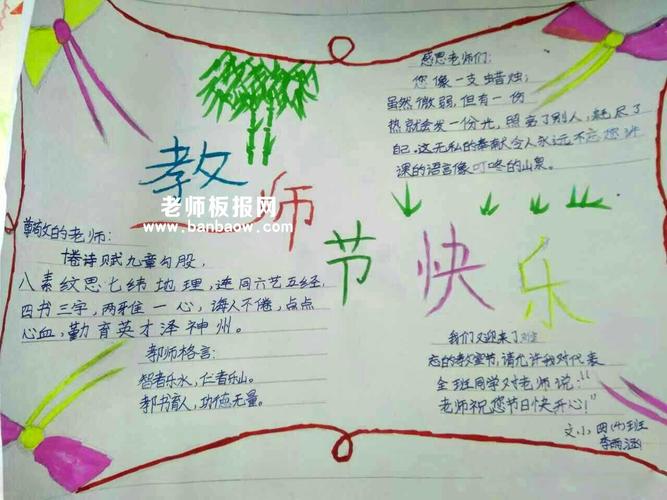 教师节快乐
老师板报网
www.banbaow.com
感恩老师们:
您像一支蜡烛;
虽然微弱,但有一份
热就会发一份光,照亮了别人,耗尽了
自己.这无私的奉献令人永远不忘您讲
课的语言像叮咚的山泉。
尊敬的老师:
诗赋九章勾股,
八素纹思七纬地理,连同六艺五经,
四书三字,两耳住一心,诲人不倦,点点
心血,勤育英才泽神州。
教师格言:
智者乐水,仁者乐山。
教书育人,功德无量。
我们又迎来了难
忘的教室节,请允许我对代表
全班同学对老师说:“
老师祝您节日快开心!”
文小四(4)班
李雨涵